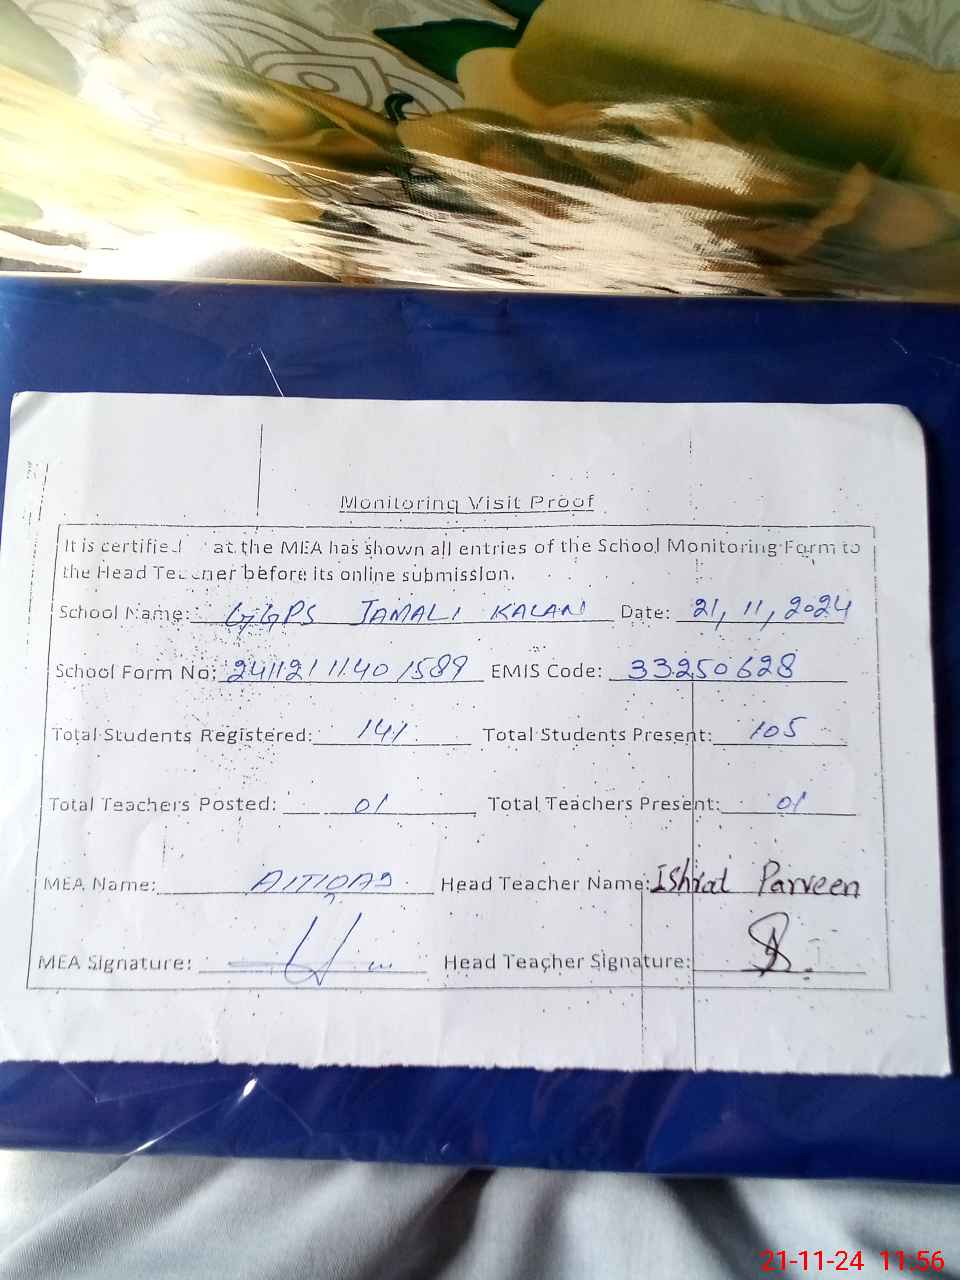 Monitoring Visit Proof
It is certified at the MEA has shown all entries of the School Monitoring Form to
the Head Teacher before its online submission.
School Name: GGPS JAMALI KALAN Date: 21, 11, 2024
School Form No: 241121 1140 1589 EMIS Code: 33250628
Total Students Registered: 141 Total Students Present: 105
Total Teachers Posted: 01 Total Teachers Present: 01
MEA Name: Head Teacher Name: Ishrat Parveen
MEA Signature: Head Teacher Signature:
21-11-24 11:56